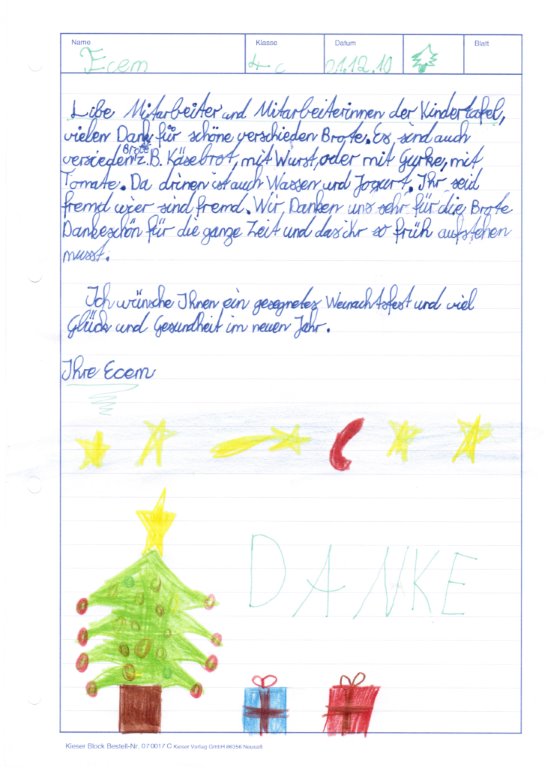 Name
Klasse
Datum
Blatt
Ecem
4c
01.12.10
Libe Mitarbeiter und Mitarbeiterinnen der Kindertafel,
vielen Dank für schöne verschieden Brote. Es sind auch
Brote
versieden z.B. Käsebrot, mit Wurst, oder mit Gurke, mit
Tomate. Da drinen ist auch Wasser und Jogurt. Ihr seid
fremd wier sind fremd. Wir Danken uns sehr für die Brote
Dankeschön für die ganze Zeit und das ihr so früh aufstehen
musst.
Ich wünsche Ihnen ein gesegnetes Weinachtsfest und viel
Glück und Gesundheit im neuen Jahr.
Ihre Ecem
DANKE
Kieser Block Bestell-Nr. 07 0017 © Kieser Verlag GmbH 86356 Neusäß